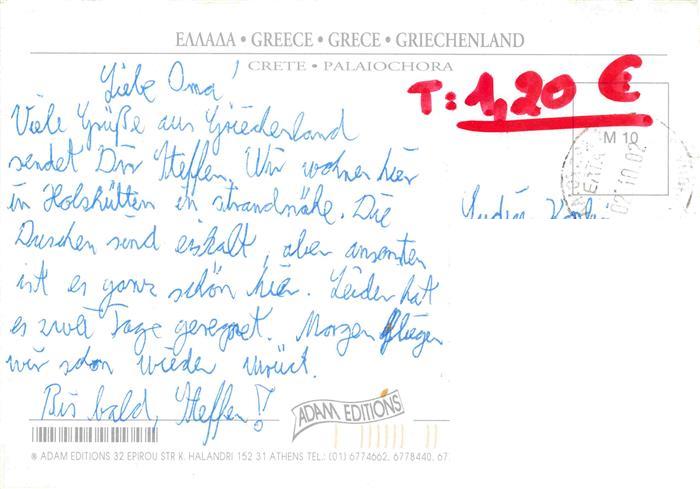 ΕΛΛΑΔΑ • GREECE • GRECE • GRIECHENLAND
CRETE • PALAIOCHORA
T: 1,20 €
M 10
02.10.02
Liebe Oma!
Viele Grüße aus Griechenland
sendet Dir Steffen. Wir wohnen hier
in Holzhütten in strandnähe. Die
Duschen sind eiskalt, aber ansonsten
ist es ganz schön hier. Leider hat
es zwei Tage geregnet. Morgen fliegen
wir schon wieder zurück.
Bis bald, Steffen!
ADAM EDITIONS
® ADAM EDITIONS 32 EPIROU STR K. HALANDRI 152 31 ATHENS TEL.: (01) 6774662, 6778440, 67